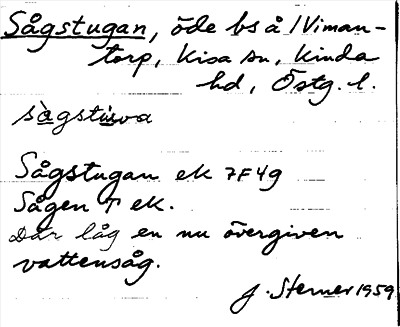 Sågstugan, öde bs å /Viman-
torp, Kisa sn, Kinda
hd, Östg. l.
sàgstuva
Sågstugan ek 7F4g
Sågen T ek.
Där låg en nu övergiven
vattensåg.
J. Sterner 1959